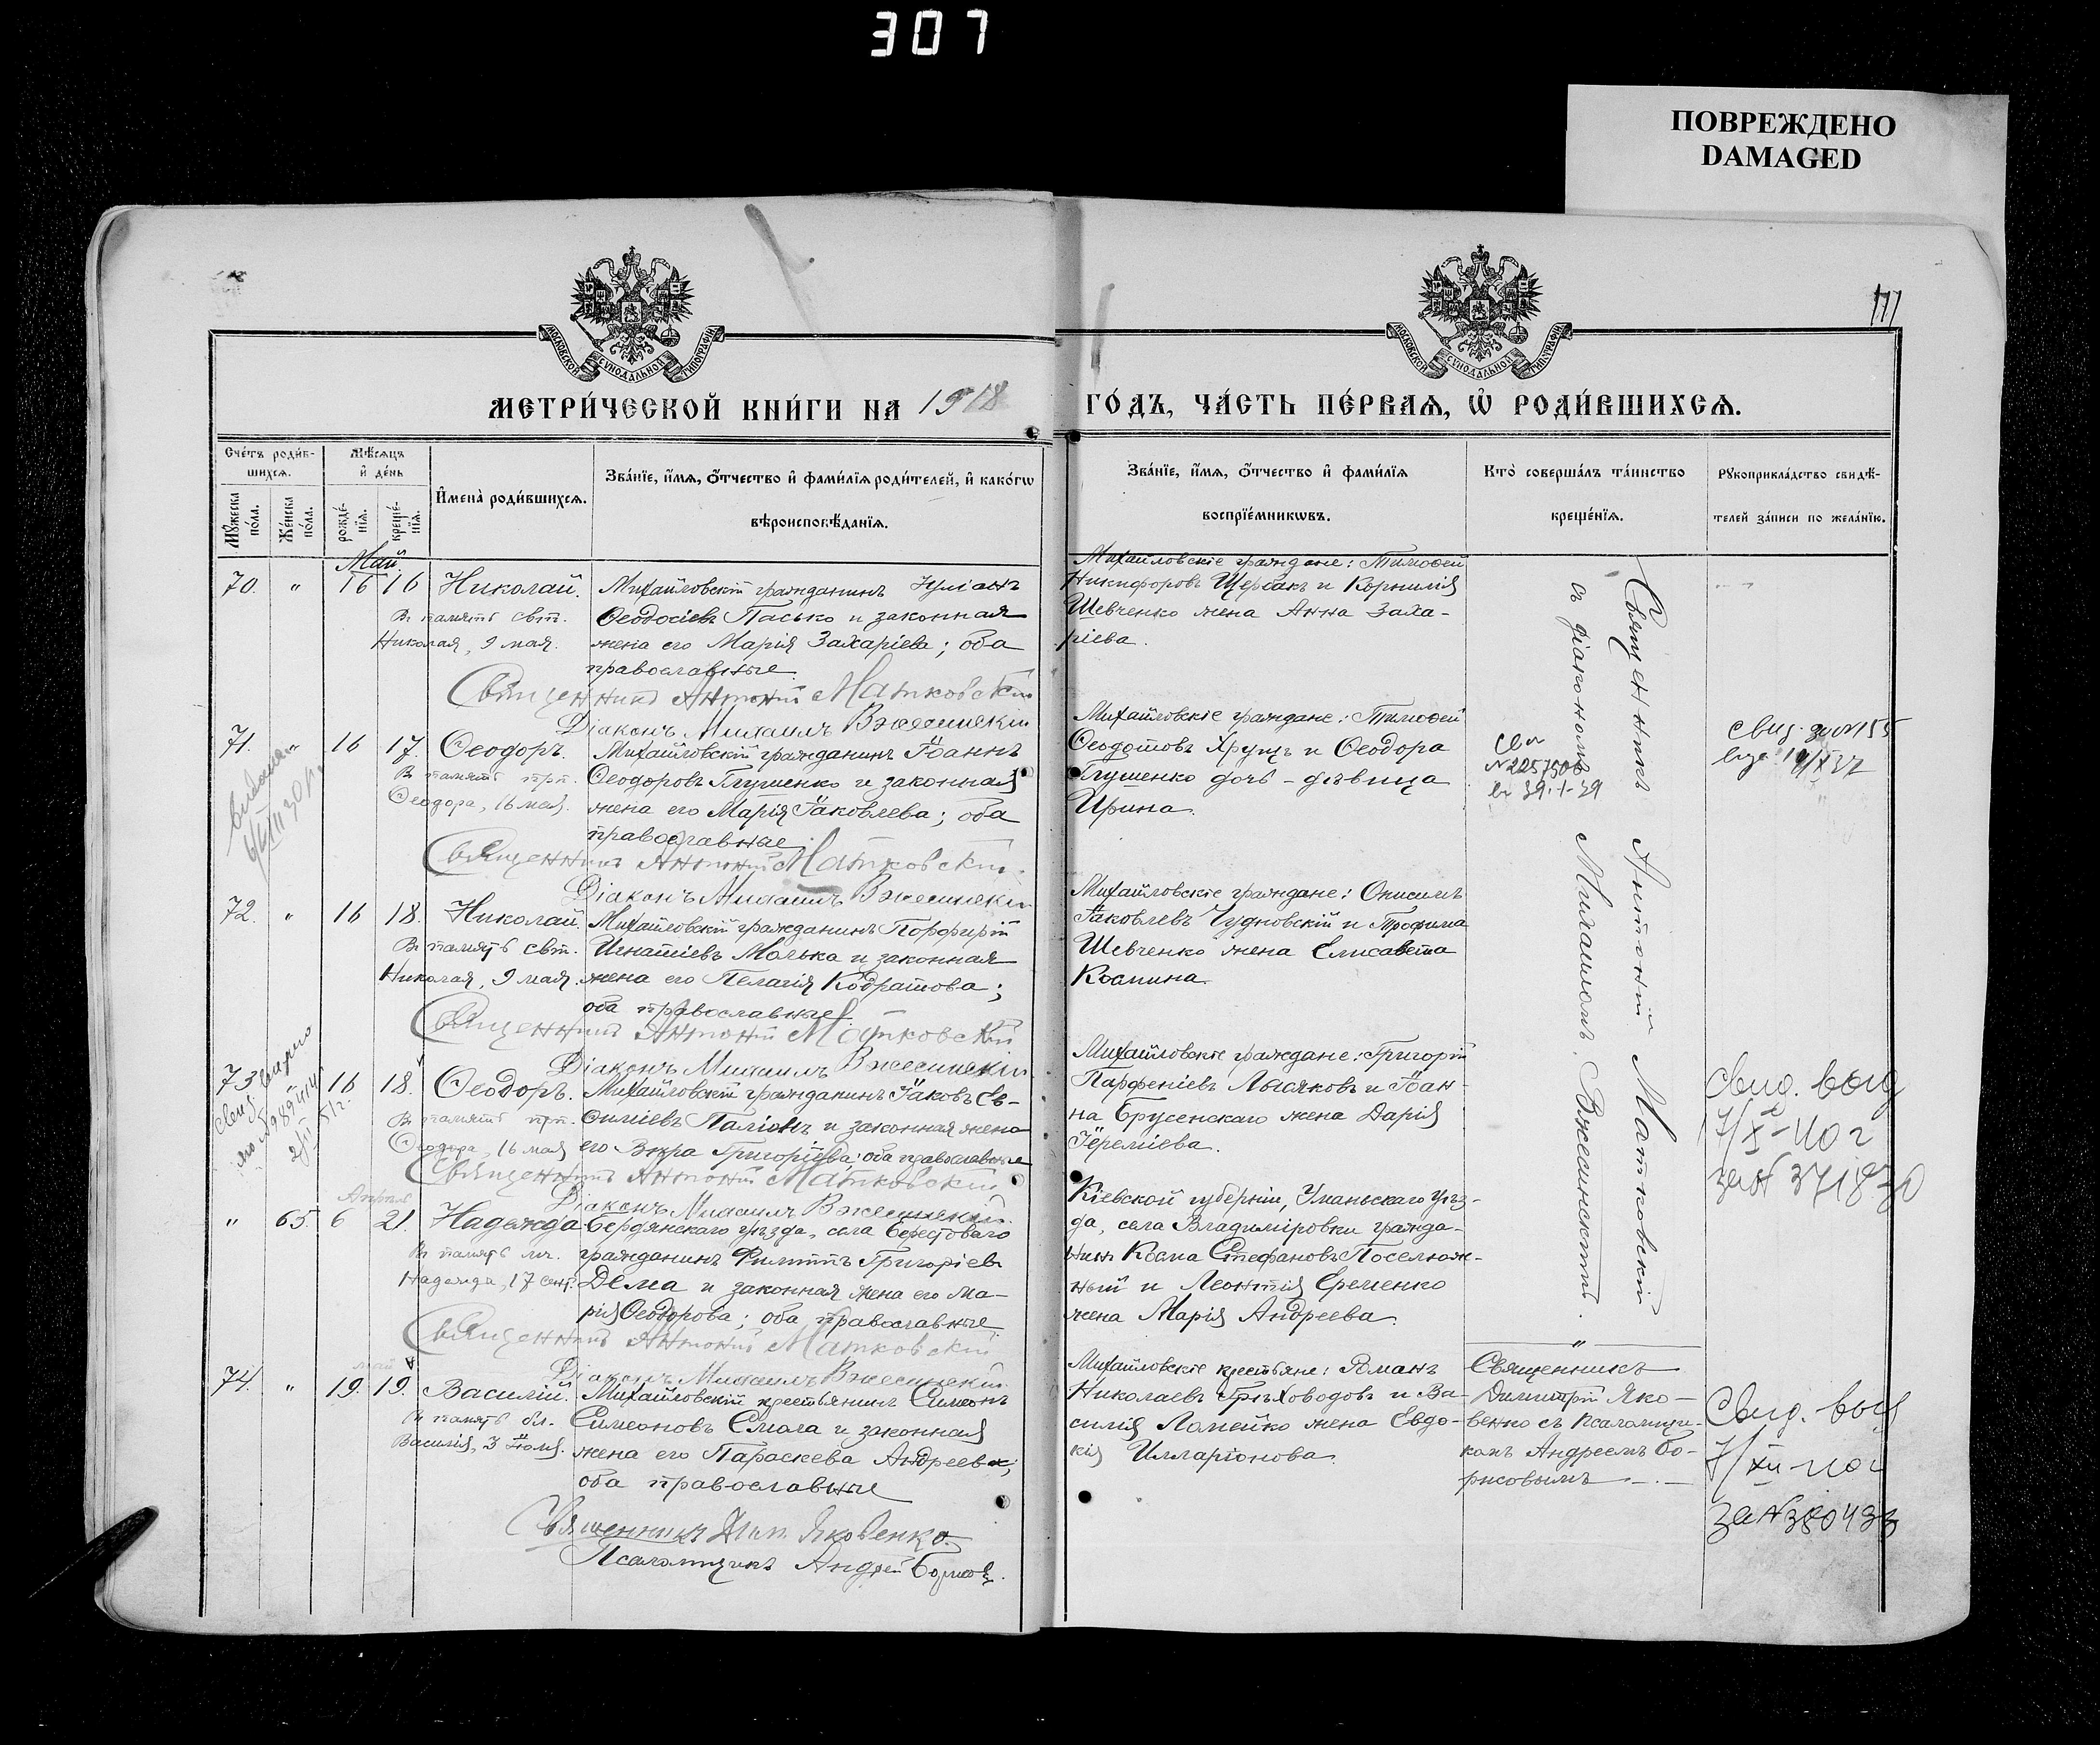 307
ПОВРЕЖДЕНО
DAMAGED
111
МОСКОВСКОЙ СѴНОДАЛЬНОЙ ТИПОГРАФІИ
МОСКОВСКОЙ СѴНОДАЛЬНОЙ ТИПОГРАФІИ
МЕТРИ́ЧЕСКОЙ КНИ́ГИ НА 1918 ГО́ДЪ, ЧА́СТЬ ПЕ́РВАЯ, Ѡ РОДИ́ВШИХСЯ.
Сче́тъ роди́в-
шихся.
Мꙋжеска по́ла.
Же́нска по́ла.
Мѣ́сяцъ
и де́нь
рожде́-
нїя.
креще́-
нїя.
Имена̀ роди́вшихся.
Зва́нїе, и́мя, ѻ́тчество и фами́лїя роди́телей, и како́гѡ
вѣроисповѣ́данїя.
Зва́нїе, и́мя, ѻ́тчество и фами́лїя
воспрїе́мникѡвъ.
Кто̀ соверша́лъ та́инство
креще́нїя.
Рꙋкоприкла́дство свидѣ́-
телей за́писи по жела́нїю.
Май.
70. " 16 16 Николай.
Въ память свт.
Николая, 9 мая.
Михайловскій гражданинъ Іуліанъ
Ѳеодосіевъ Пасько и законная
жена его Марія Захаріева; оба
православные.
Священникъ Антоній Матковскій
Діаконъ Михаилъ Вжесинскій
Михайловскіе граждане: Тимоѳей
Никифоровъ Щербакъ и Корнилія
Шевченко жена Анна Заха-
ріева.
Священникъ Антоній Матковскій
съ діакономъ Михаиломъ Вжесинскимъ.
71. " 16 17. Ѳеодоръ.
Въ память прп.
Ѳеодора, 16 мая.
Михайловскій гражданинъ Іоаннъ
Ѳеодоровъ Глушенко и законная
жена его Марія Іаковлева; оба
православные
Священникъ Антоній Матковскій.
Діаконъ Михаилъ Вжесинскій
Михайловскіе граждане: Тимоѳей
Ѳеодотовъ Хрущъ и Ѳеодора
Глушенко дочь - дѣвица
Ирина.
72. " 16 18. Николай.
Въ память свт.
Николая, 9 мая.
Михайловскій гражданинъ Порфирій
Игнатіевъ Молька и законная
жена его Пелагія Кодратова;
оба православные.
Священникъ Антоній Матковскій
Діаконъ Михаилъ Вжесинскій
Михайловскіе граждане: Онисимъ
Іаковлевъ Чудновскій и Трофима
Шевченко жена Елисавета
Космина.
73 16 18. Ѳеодоръ.
Въ память прп.
Ѳеодора, 16 мая
Михайловскій гражданинъ Іаковъ Ев-
симіевъ Паліонъ и законная жена
его Вѣра Григоріева; оба православные
Священникъ Антоній Матковскій
Діаконъ Михаилъ Вжесинскій.
Михайловскіе граждане: Григорій
Парѳеніевъ Лысяковъ и Іоан-
на Брусенскаго жена Дарія
Іереміева.
свид. выд
7/X-40 г
за N 371830
Апрѣль
" 65. 6 21. Надежда
Въ память мч.
Надежда, 17 сент.
Бердянскаго уѣзда, села Берестоваго
гражданинъ Филиппъ Григоріевъ
Дема и законная жена его Ма-
рія Ѳеодорова; оба православные.
Священникъ Антоній Матковскій
Діаконъ Михаилъ Вжесинскій.
Кіевской губерніи, Уманьскаго уѣз-
да, села Владиміровки гражда-
нинъ Косма Стефановъ Поселюж-
ный и Леонтія Еременко
жена Марія Андреева.
май
74. " 19. 19. Василій.
Въ память бл.
Василія, 3 Іюля.
Михайловскій крестьянинъ Симеонъ
Симеоновъ Смала и законная
жена его Параскева Андреева;
оба православные
Священникъ Дим. Яковенко.
Псаломщикъ Андрей Борисовъ.
Михайловскіе крестьяне: Романъ
Николаевъ Грѣховодовъ и Ва-
силія Ломейко жена Евдо-
кія Илларіонова.
Священникъ
Димитрій Яко-
венко съ псаломщи-
комъ Андреемъ Бо-
рисовымъ
Свид. выд
7/XII-40г
за N 380433